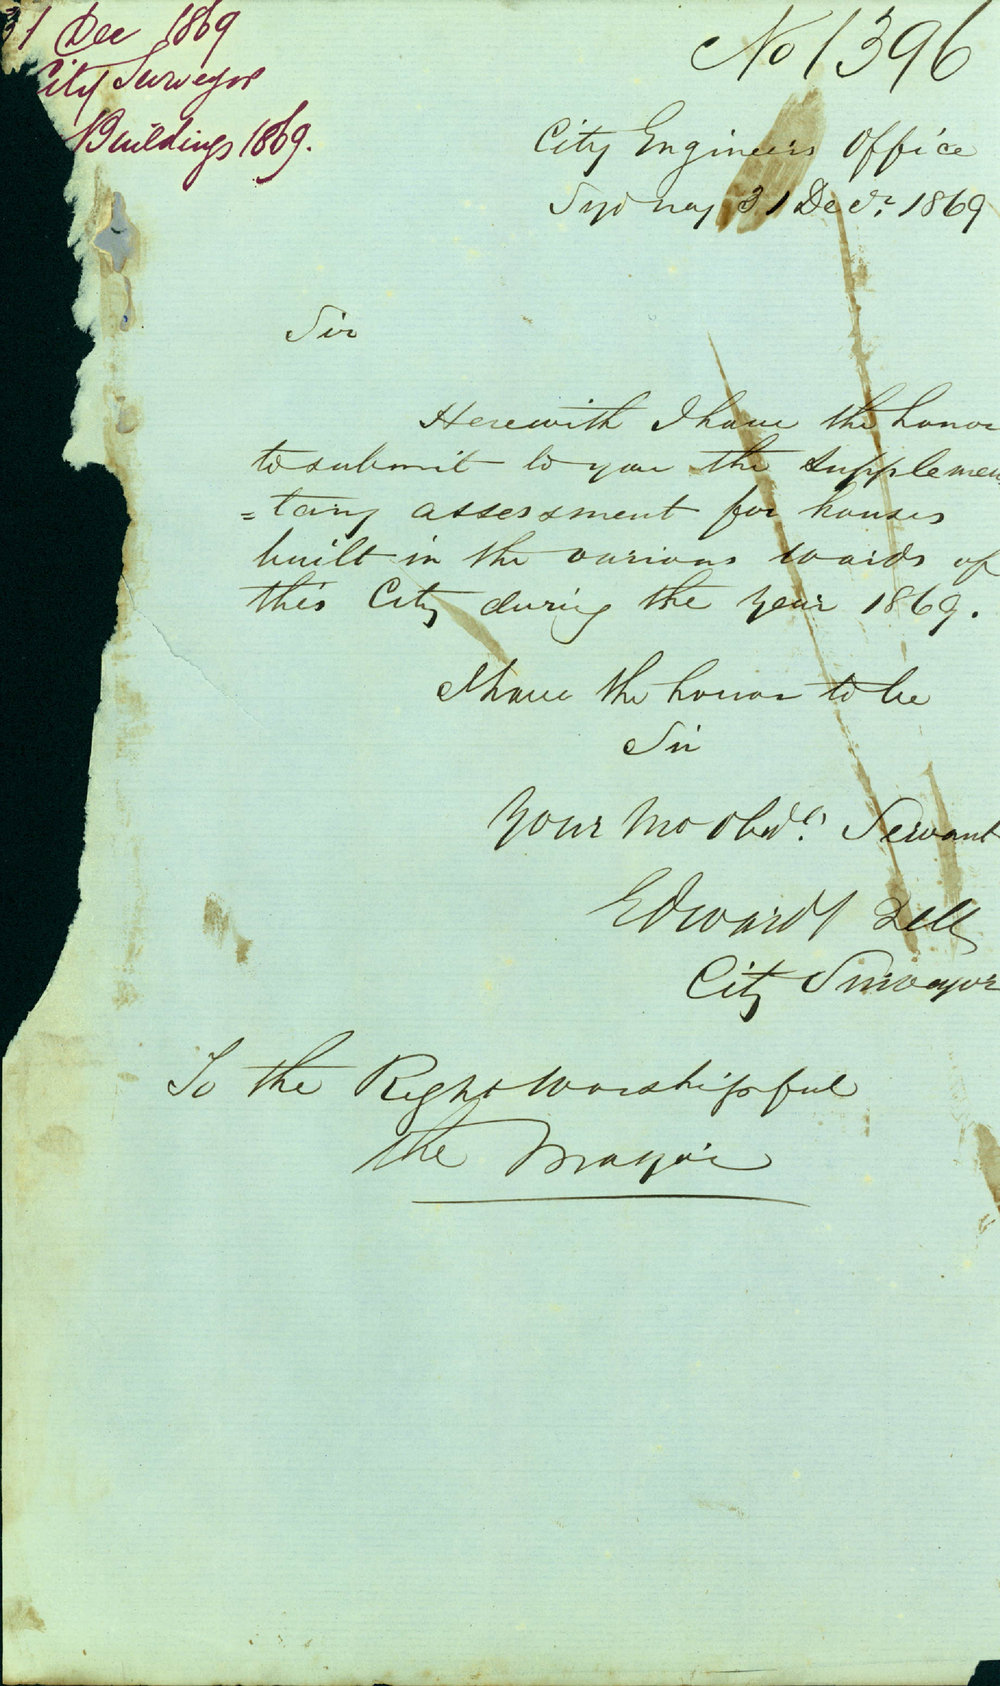 31 Dec 1869
City Surveyor
Buildings 1869.
No 1396
City Engineers Office
Sydney 31 Decr. 1869
Sir
Herewith I have the honor
to submit to you the Supplemen
=tary assessment for houses
built in the various wards of
this City during the Year 1869.
I have the honor to be
Sir
Your Mo Obedt. Servant
Edward Bell
City Surveyor
To the Right Worshipful
the Mayor